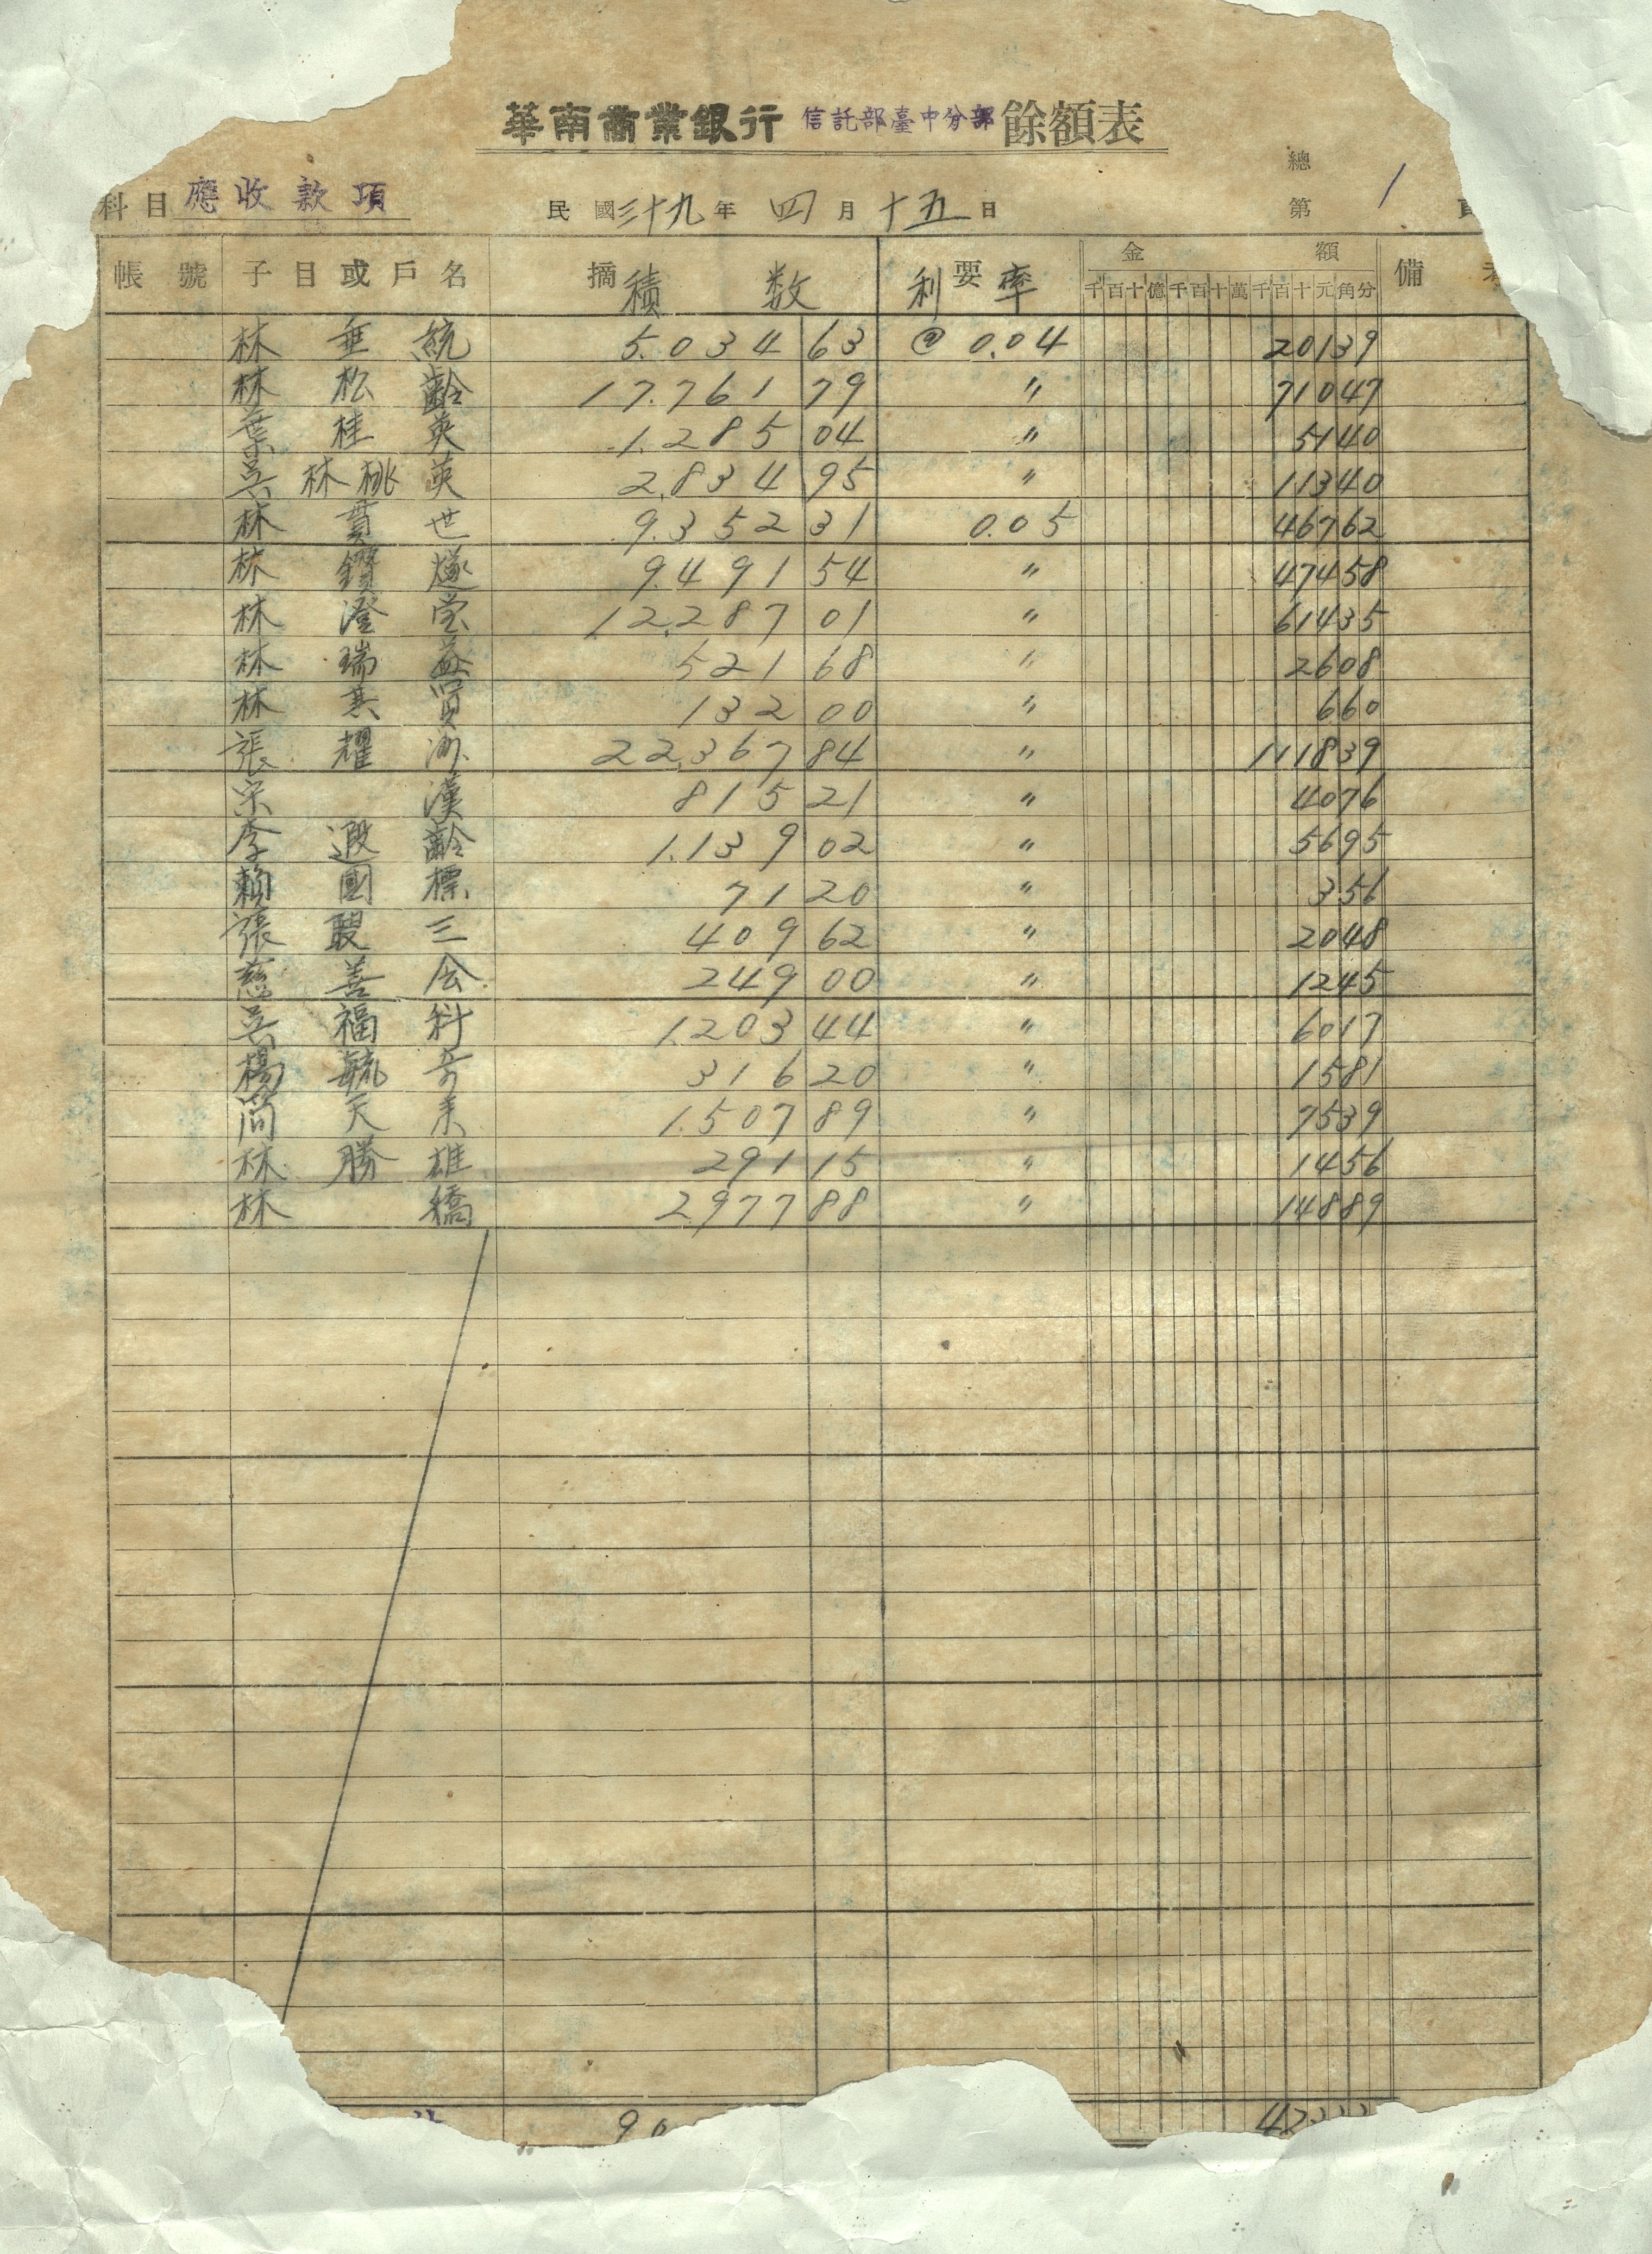 華南商業銀行 信託部臺中分部 餘額表
總
科目 應收款項 民國三十九年 四月十五日 第 1
帳號 子目或戶名 摘要 金額 備
積數 利率 千百十億千百十萬千百十元角分
林垂統 5.034 63 @ 0.04 20139
林松齡 17.761 79 〃 71047
葉桂英 1.285 04 〃 5140
吳林桃英 2.834 95 〃 11340
林賁世 9.352 31 0.05 46762
林鑽燧 9.491 54 〃 47458
林澄堂 12.287 01 〃 61435
林瑞益 521 68 〃 2608
林其賢 132 00 〃 660
張耀 22.367 84 〃 111839
宋漢 815 21 〃 4076
李遐齡 1.139 02 〃 5695
賴國標 71 20 〃 356
張聚三 409 62 〃 2048
慈善会 249 00 〃 1245
吳福科 1.203 44 〃 6017
楊毓奇 316 20 〃 1581
天 1.507 89 〃 7539
林勝雄 291 15 〃 1456
林繑 2.977 88 〃 14889